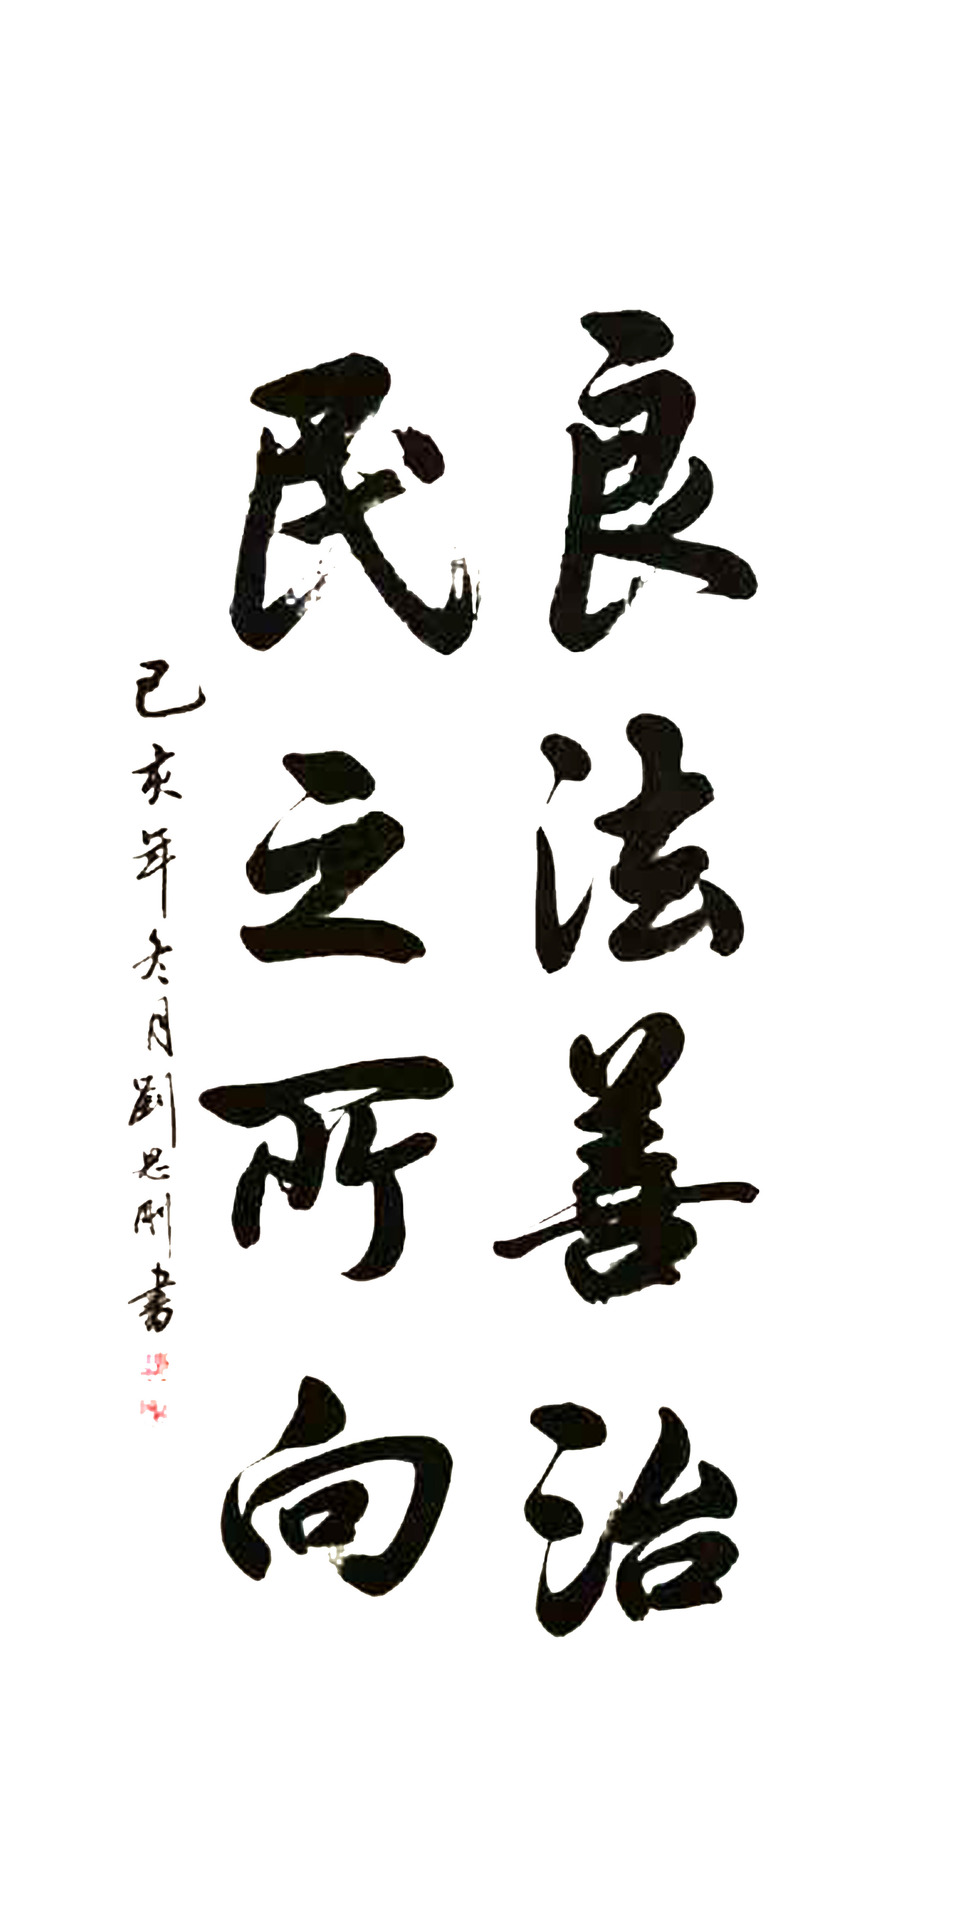 良法善治
民之所向
己亥年冬月劉思刚書